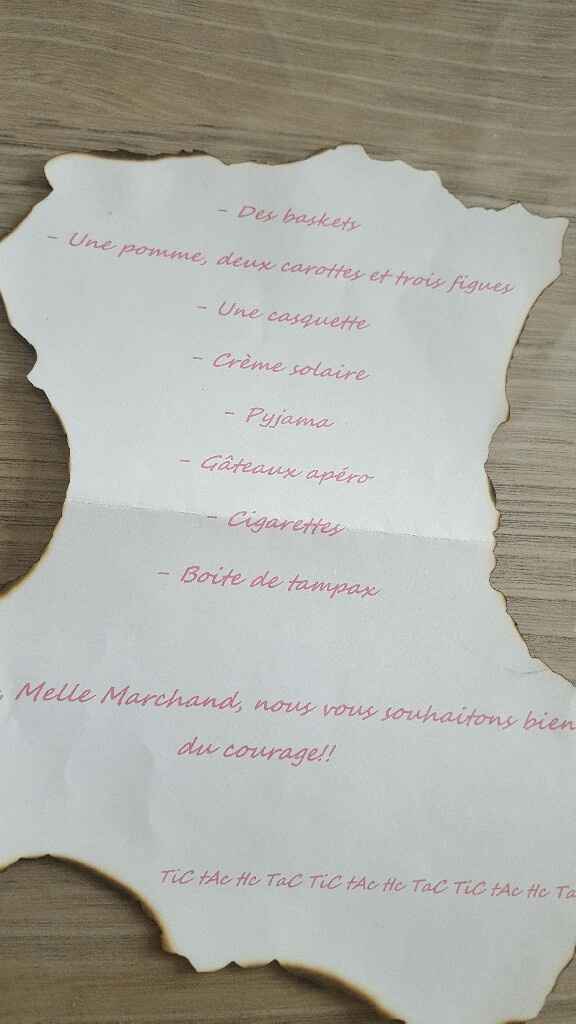 - Des baskets
- Une pomme, deux carottes et trois figues
- Une casquette
- Crème solaire
- Pyjama
- Gâteaux apéro
- Cigarettes
- Boite de tampax
, Melle Marchand, nous vous souhaitons bien
du courage!!
TiC tAc Hc TaC TiC tAc Hc TaC TiC tAc Hc Ta